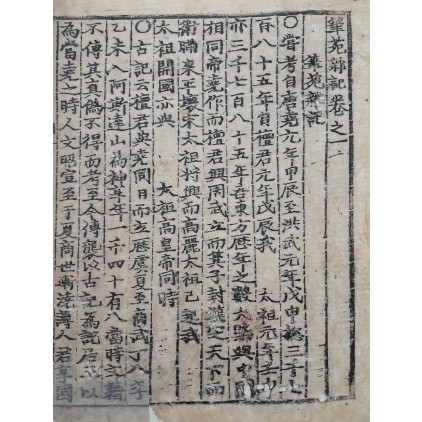 筆苑雜記卷之一
筆苑雜記
〇嘗考自唐堯元年甲辰至洪武元年戊申總三千七
百八十五年自檀君元年戊辰我 太祖元年壬申
亦三千七百八十五年吾東方歷年之數大槩與中國
相同帝堯作而檀君興周武立而箕子封漢定天下而
衛滿來平壤宋太祖將興而高麗太祖已起我
太祖開國亦與 太祖高皇帝同時
〇古記云檀君與堯同日而立歷虞夏至商武丁八年
乙未入阿斯達山為神享年一千四十有八當時文籍
不傳其真偽不得而考至今傳襲以古記為說居正以
為當堯之時人文昭宣至于夏商世漸澆漓人君享國